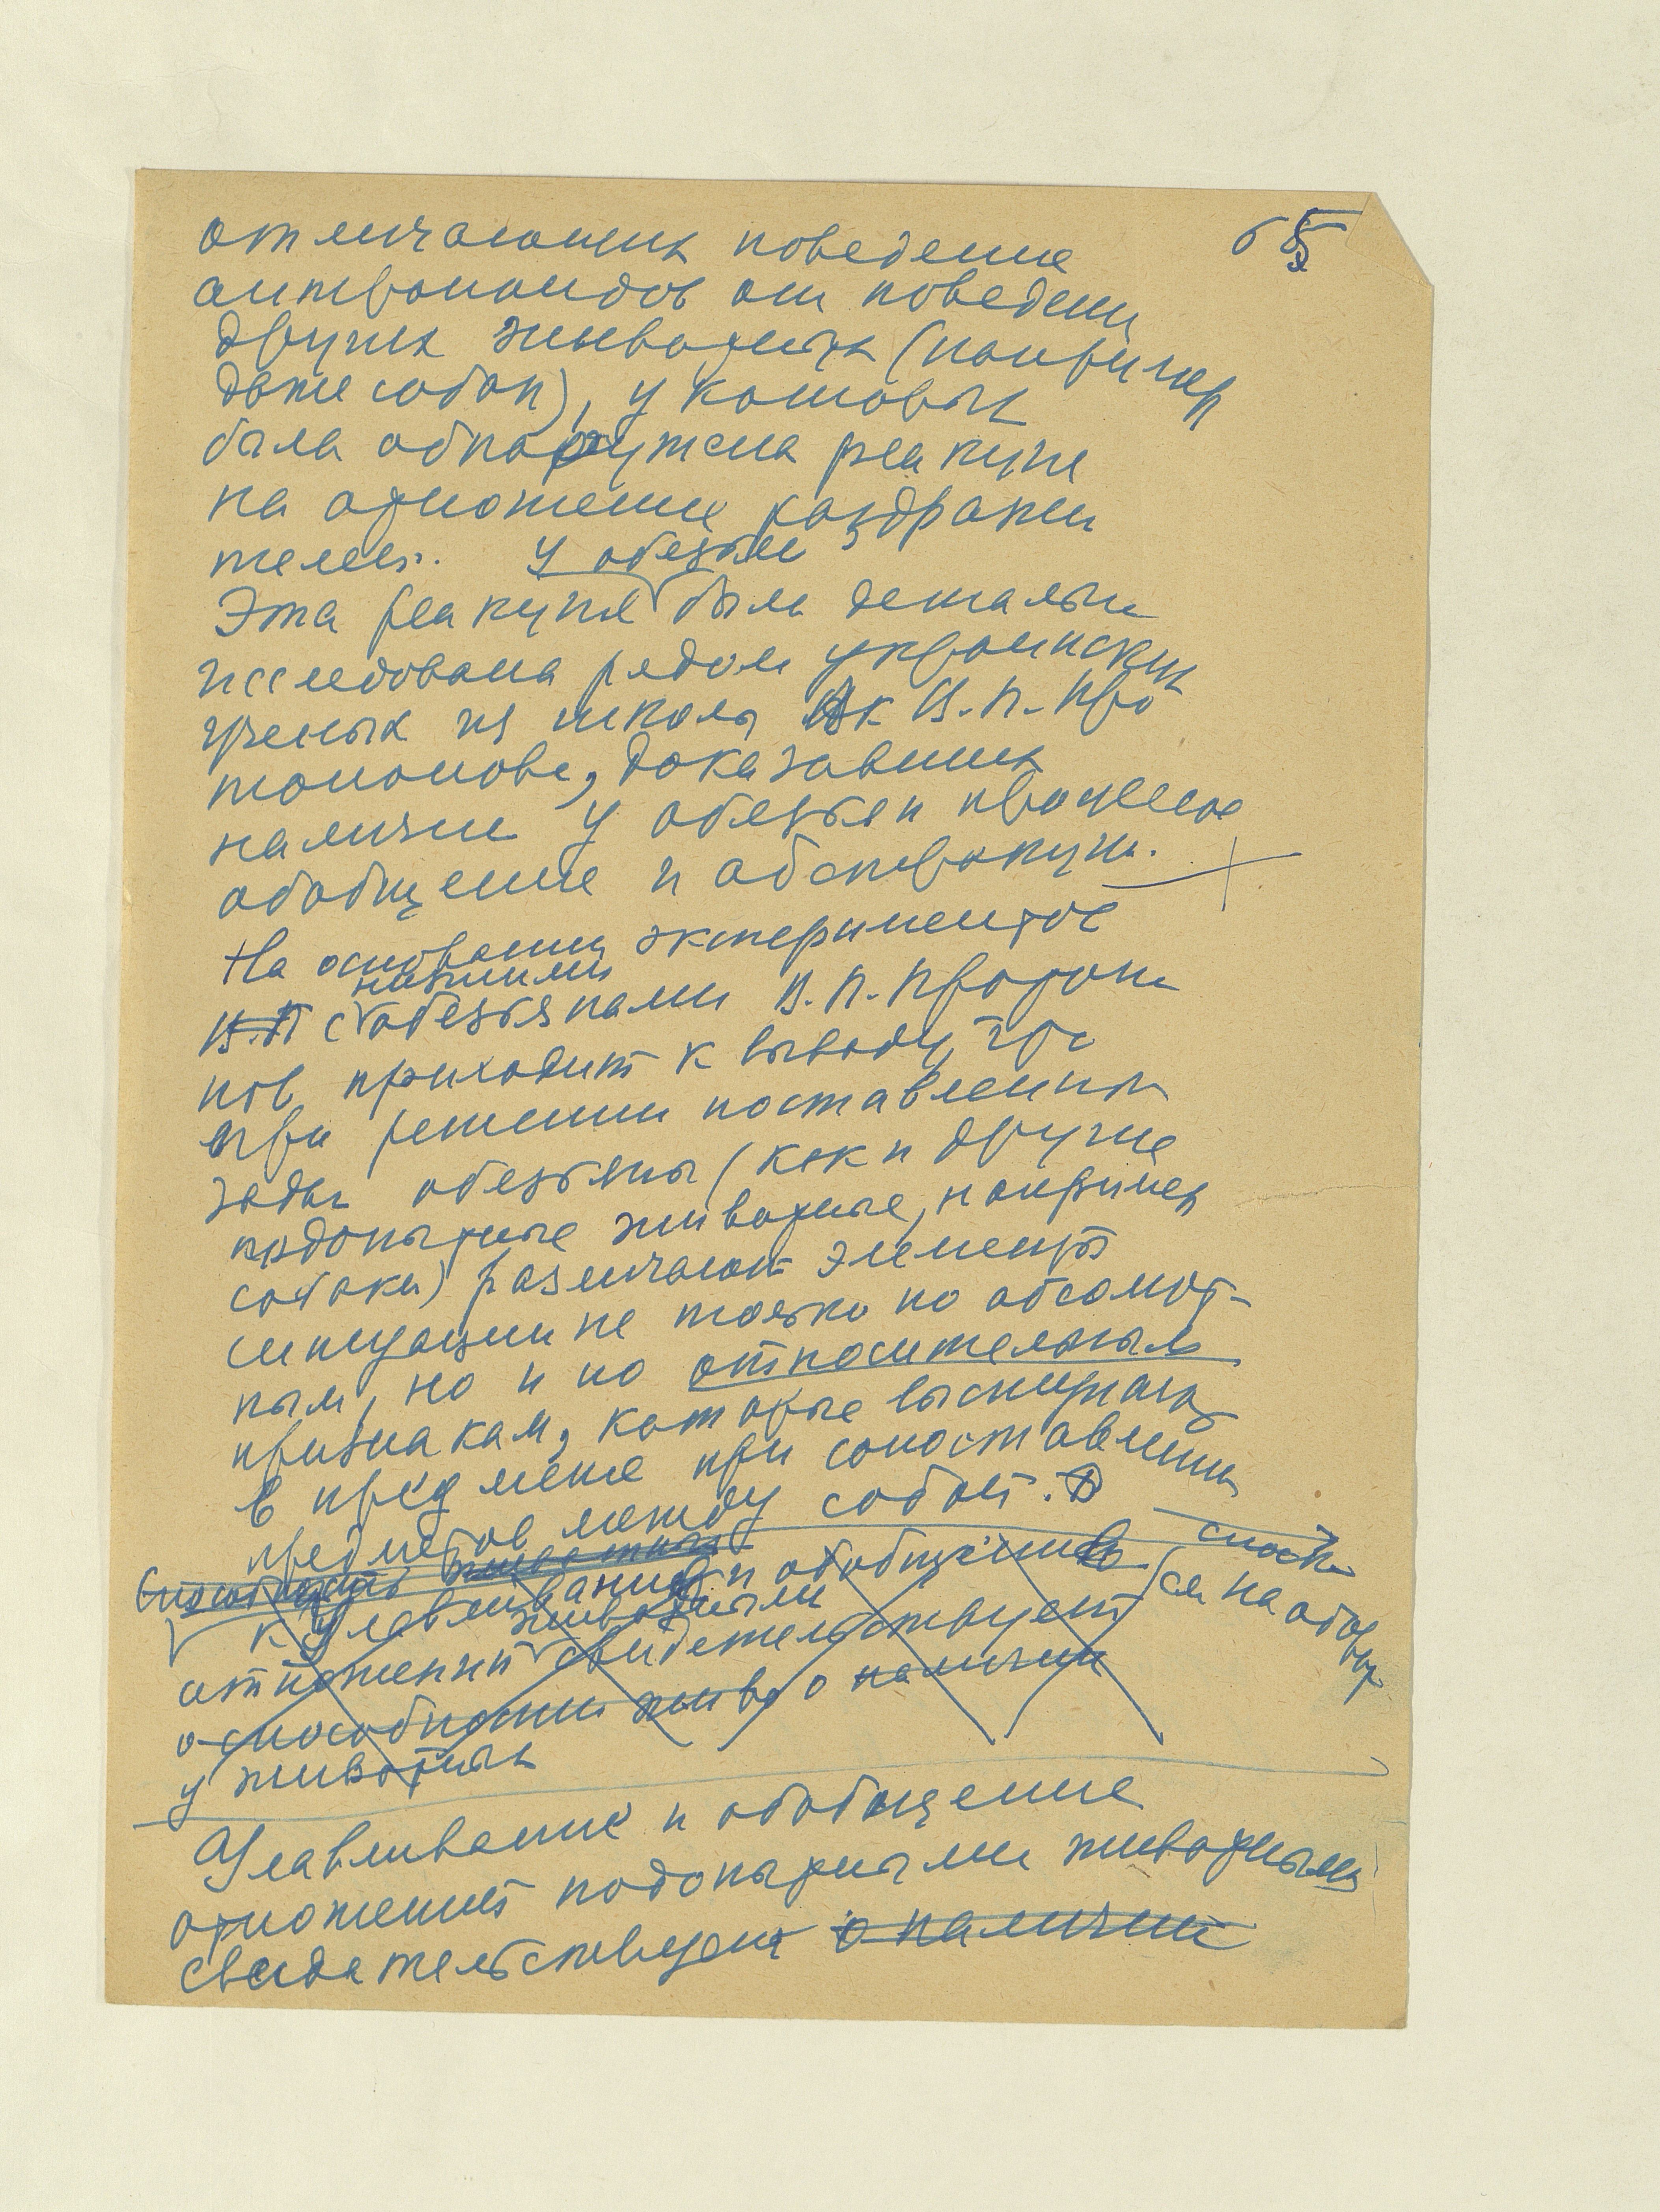 65
отличающих поведение
антропоидов от поведени
других животных (например
даже собак), у которых
была обнаружена реакция
на отношение раздражи
телей. у обезьян
Эта реакция была детально
исследована рядом украинских
ученых из школы Ак В.П. Про
топопова, доказавших
наличие у обезьян процессов
обобщения и абстракции.
На основании экспериментов
низшими
В.П с обезьянами В.П. Протопо
пов приходит к выводу, что
при решении поставленной
задачи обезьяны (как и другие
подопытные животные, например
собаки) различают элементы
ситуации не только по абсолют-
ным, но и по относительным
признакам, которые выступают
в предмете при сопоставлении
предметов между собой.
сноска
Способность животных
к улавливанию и обобщению
см на обор
животными
отношений свидетельствует
о способности живо о наличии
у животных
Улавливание и обобщение
отношений подопытными животными
свидетельствует о наличии